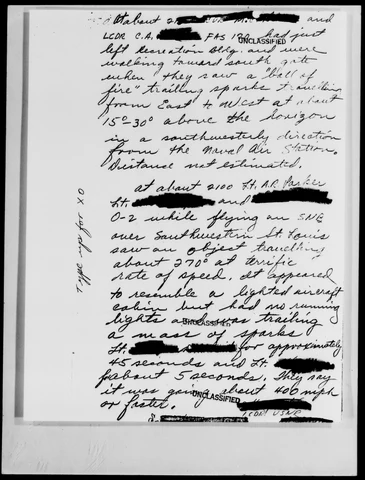 At about 21 and
LCDR C.A. FAS 182 had just
UNCLASSIFIED
left Recreation Bldg. and were
walking toward south gate
when they saw a "ball of
fire" trailing sparks travelling
from East to West at about
15°-30° above the horizon
in a southwesterly direction
from the Naval Air Station.
Distance not estimated.
at about 2100 Lt. A.R. Parker
Lt. and
O-2 while flying an SNB
over Southwestern St. Louis
saw an object travelling
about 270° at terrific
rate of speed. It appeared
to resemble a lighted aircraft
cabin but had no running
lights and was trailing
UNCLASSIFIED
a mass of sparks
Lt. for approximately
45 seconds and Lt.
for about 5 seconds. They say
it was going about 400 mph
UNCLASSIFIED
or faster.
LCDR USNR
for XO